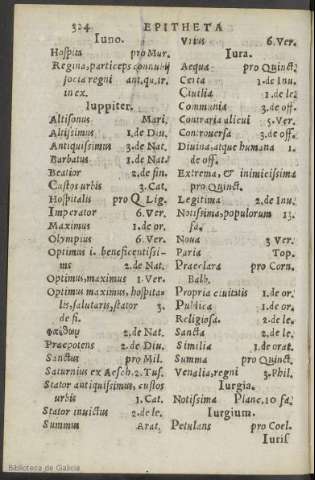 324 EPITHETA
Iuno.
Hospita pro Mur.
Regina, particeps connubij
socia regni ant. qu. ir.
in ex.
Iuppiter.
Altisonus Mari.
Altissimus 1. de Diu.
Antiquissimus 3. de Nat.
Barbatus 1. de Nat.
Beatior 2. de fin.
Custos urbis 3. Cat.
Hospitalis pro Q Lig.
Imperator 6. Ver.
Maximus 1. de or.
Olympius 6. Ver.
Optimus i. beneficentissi-
mus 2. de Nat.
Optimus, maximus 1. Ver.
Optimus maximus, hospita-
lis, salutaris, stator 3.
de fi.
2. de Nat.
Praepotens 2. de Diu.
Sanctus pro Mil.
Saturnius ex Aesch. 2. Tus.
Stator antiquissimus, custos
urbis 1. Cat.
Stator inuictus 2. de le.
Summus Arat.
Vrius 6. Ver.
Iura.
Aequa pro Quinct.
Certa 1. de Inu.
Ciuilia 1. de le.
Communia 3. de off.
Contraria alicui 5. Ver.
Controuersa 3. de off.
Diuina, atque humana 1.
de off.
Extrema, & inimicissima
pro Quinct.
Legitima 2. de Inu.
Notissima, populorum 13.
fa.
Noua 3 Ver.
Paria Top.
Praeclara pro Corn.
Balb.
Propria ciuitatis 1. de or.
Publica 1. de or.
Religiosa. 2. de le.
Sancta 2. de le.
Similia 1. de orat.
Summa pro Quinct.
Venalia, regni 3. Phil.
Iurgia.
Notissima Planc. 10 fa.
Iurgium.
Petulans pro Coel.
Iuris
Biblioteca de Galicia